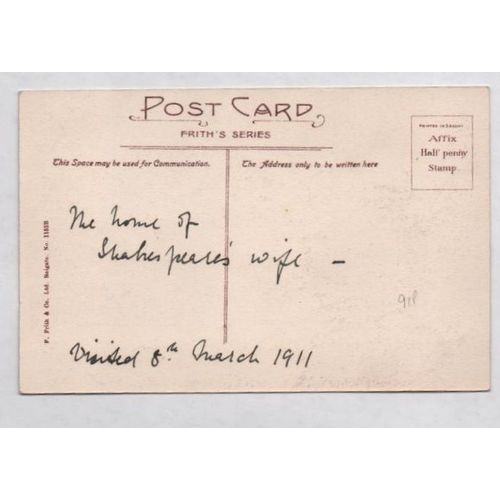 POST CARD
FRITH'S SERIES
This Space may be used for Communication.
The Address only to be written here
Affix
Half penny
Stamp.
The home of
Shakespeare's wife –
Visited 8th March 1911
F. Frith & Co. Ltd. Reigate.